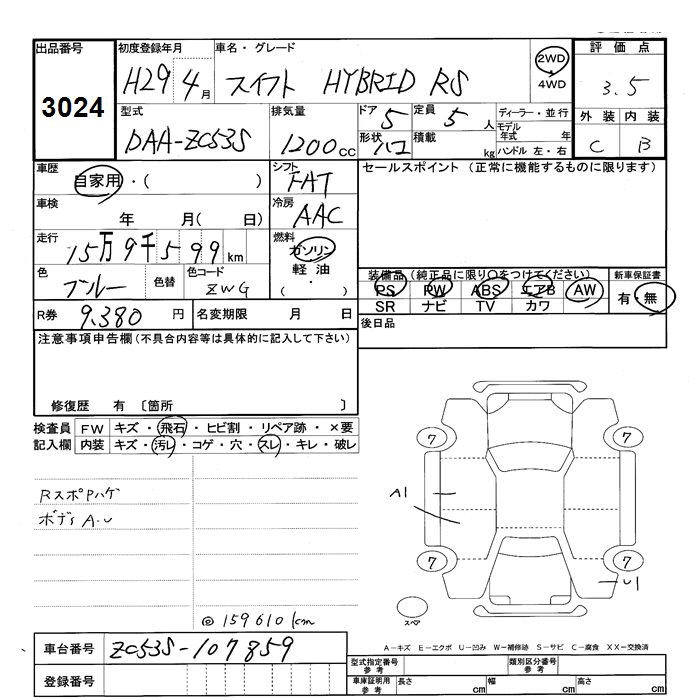 出品番号 初度登録年月 車名・グレード 2WD 評価点
3024 H29年4月 スイフト HYBRID RS 4WD 3.5
型式 排気量 ドア 5 定員 5人 ディーラー・並行 外装 内装
DAA-ZC53S 1200cc 形状 ハコ 積載 kg モデル年式 年 C B
ハンドル 左・右
車歴 自家用・( ) シフト FAT セールスポイント (正常に機能するものに限ります)
車検 年 月( 日) 冷房 AAC
走行 15万9千599km 燃料 ガソリン
軽油
・
( )
色 ブルー 色替 色コード ZWG
装備品(純正品に限り○をつけてください) 新車保証書
PS PW ABS エアB AW 有・無
SR ナビ TV カワ
R券 9.380円 名変期限 月 日 後日品
注意事項申告欄(不具合内容等は具体的に記入して下さい)
修復歴 有 〔箇所 〕
検査員 FW キズ・飛石・ヒビ割・リペア跡・×要
記入欄 内装 キズ・汚レ・コゲ・穴・スレ・キレ・破レ
RスポPハゲ
ボディA.U
7 7
A1
7 7
U1
スペア
◎159610km
A-キズ E-エクボ U-凹み W-補修跡 S-サビ C-腐食 XX-交換済
車台番号 ZC53S-107859
型式指定番号 参考 類別区分番号 参考
登録番号
車庫証明用 参考 長さ cm 幅 cm 高さ cm